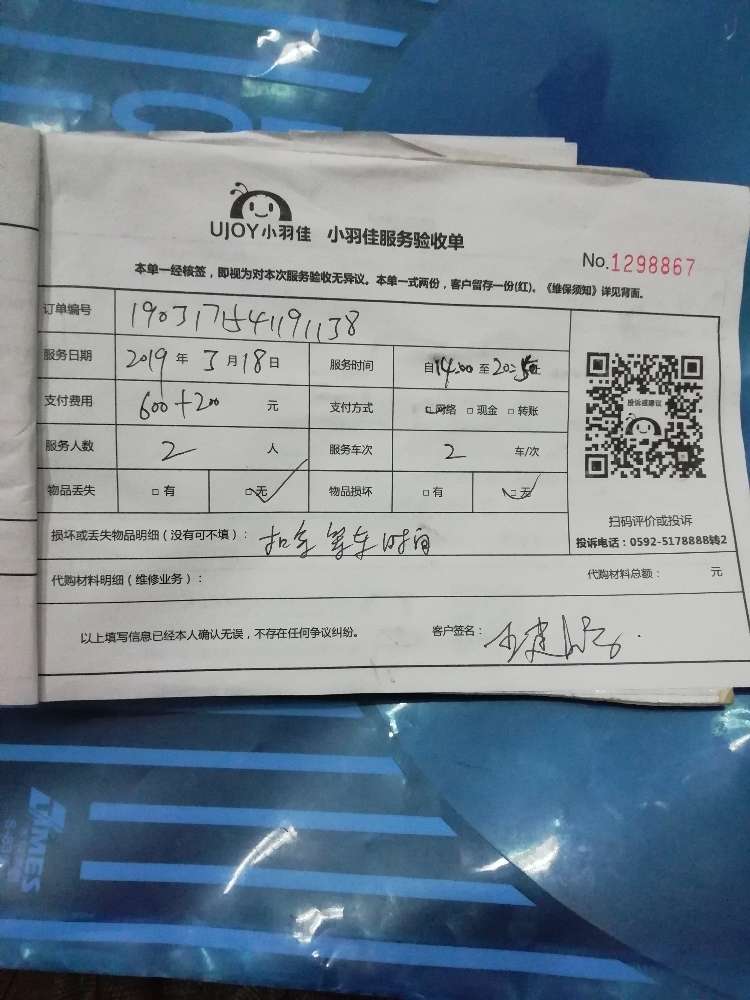 UJOY小羽佳 小羽佳服务验收单
No.1298867
本单一经核签，即视为对本次服务验收无异议。本单一式两份，客户留存一份(红)、《维保须知》详见背面。
订单编号 1903171541191138
服务日期 2019 年 3 月 18 日 服务时间 自 14:00 至 20:
支付费用 600+200 元 支付方式 □网络 □现金 □转账
服务人数 2 人 服务车次 2 车/次
物品丢失 □有 □无 物品损坏 □有 □无
投诉或建议
扫码评价或投诉
投诉电话：0592-5178888转2
损坏或丢失物品明细（没有可不填）： 扣除等车时间
代购材料明细（维修业务）： 代购材料总额： 元
以上填写信息已经本人确认无误，不存在任何争议纠纷。 客户签名：
TAMES